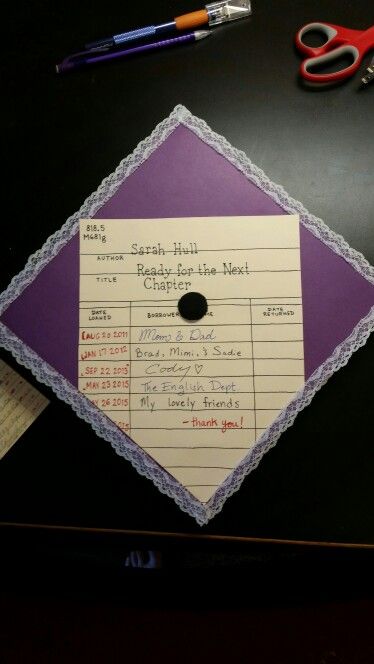 818.5
M681g
AUTHOR Sarah Hull
TITLE Ready for the Next
Chapter
DATE LOANED BORROWER DATE RETURNED
AUG 20 2011 Mom & Dad
JAN 17 2012 Brad, Mimi, & Sadie
SEP 22 2013 Cody♡
MAY 23 2015 The English Dept.
MAY 26 2015 My lovely friends
2015 -thank you!